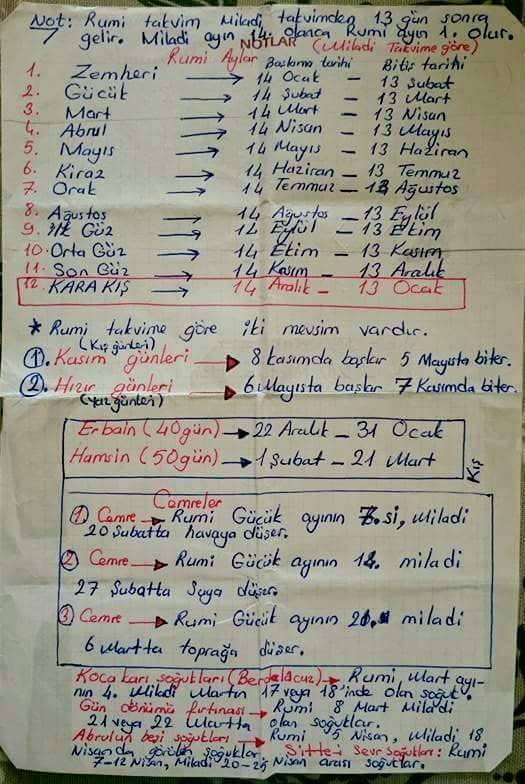 Not: Rumi takvim Miladi, takvimden 13 gün sonra
gelir. Miladi ayın 14. olanca Rumi ayın 1. olur.
NOTLAR
Rumi Aylar (Miladi Takvime göre)
Başlama tarihi Bitiş tarihi
1. Zemheri → 14 Ocak - 13 Şubat
2. Gücük → 14 Şubat - 13 Mart
3. Mart → 14 Mart - 13 Nisan
4. Abrul → 14 Nisan - 13 Mayıs
5. Mayıs → 14 Mayıs - 13 Haziran
6. Kiraz → 14 Haziran - 13 Temmuz
7. Orak → 14 Temmuz - 13 Ağustos
8. Ağustos → 14 Ağustos - 13 Eylül
9. İlk Güz → 14 Eylül - 13 Ekim
10. Orta Güz → 14 Ekim - 13 Kasım
11. Son Güz → 14 Kasım - 13 Aralık
12. KARA KIŞ → 14 Aralık - 13 Ocak
* Rumi takvime göre iki mevsim vardır.
(Kış günleri)
1. Kasım günleri → 8 kasımda başlar 5 Mayısta biter.
2. Hızır günleri → 6 Mayısta başlar 7 Kasımda biter.
(Yaz günleri)
Erbain (40 gün) → 22 Aralık - 31 Ocak
Hamsin (50 gün) → 1 Şubat - 21 Mart
Kış
Cemreler
1 Cemre → Rumi Gücük ayının 7.si, Miladi
20 Şubatta havaya düşer.
2 Cemre → Rumi Gücük ayının 14. miladi
27 Şubatta Suya düşer.
3 Cemre → Rumi Gücük ayının 21. miladi
6 Martta toprağa düşer.
Koca karı soğukları (Berdelacuz) → Rumi Mart ayı-
nın 4. Miladi Martın 17 veya 18'inde olan soğuk.
Gün dönümü fırtınası → Rumi 8 Mart Miladi
21 veya 22 Martta olan soğuklar.
Abrulun beşi soğukları → Rumi 5 Nisan, Miladi 18
Nisanda görülen soğuklar. Sitte-i Sevr soğukları: Rumi
7-12 Nisan, Miladi 20-25 Nisan arası soğuklar.